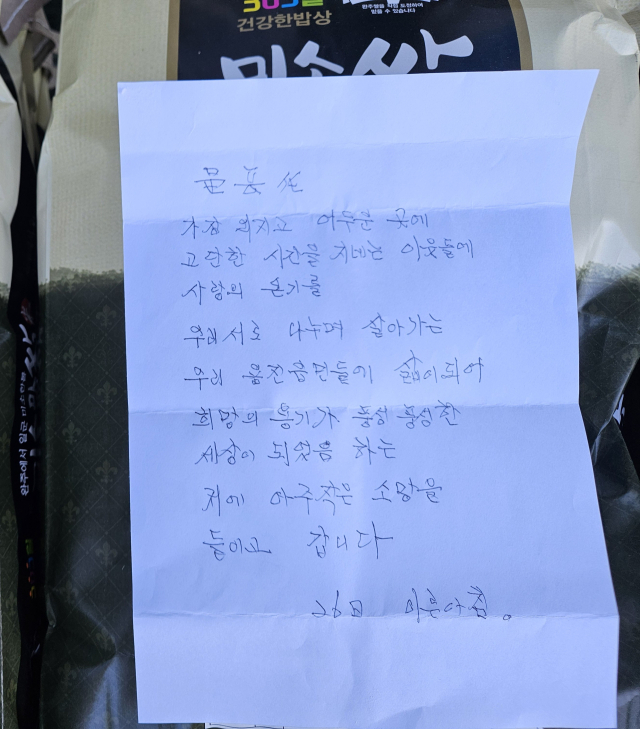 365일
건강한밥상
완주쌀을 직접 도정하여
믿을 수 있습니다
미소쌀
가장 외지고 어두운 곳에
고단한 시간을 지네는 이웃들에
사랑의 온기를
우리서로 나누며 살아가는
우리 용진읍민들에 삶이되어
희망의 용기가 풍성 풍성한
세상이 되었음 하는
저에 아주작은 소망을
들이고 갑니다
26日 이른아침.
완주에서 일군